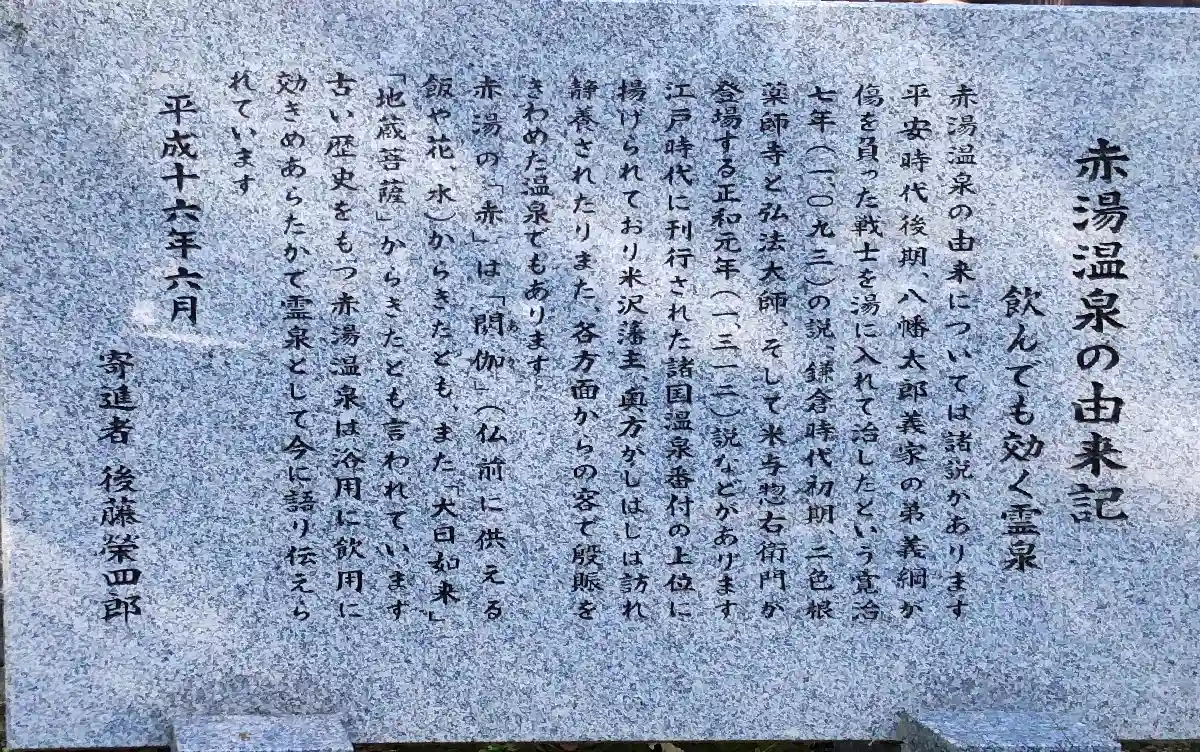 赤湯温泉の由来記
飲んでも効く霊泉
赤湯温泉の由来については諸説があります
平安時代後期、八幡太郎義家の弟義綱が
傷を負った戦士を湯に入れて治したという寛治
七年(一、〇九三)の説、鎌倉時代初期、二色根
薬師寺と弘法大師、そして米与惣右衛門が
登場する正和元年(一、三一二)説などがあります
江戸時代に刊行された諸国温泉番付の上位に
揚げられており米沢藩主、奥方がしばしば訪れ
静養されたりまた、各方面からの客で殷賑を
きわめた温泉でもあります
赤湯の「赤」は「閼伽」(仏前に供える
飯や花、水)からきたとも、また「大日如来」
「地蔵菩薩」からきたとも言われています
古い歴史をもつ赤湯温泉は浴用に飲用に
効きめあらたかで霊泉として今に語り伝えら
れています
平成十六年六月
寄進者 後藤榮四郎